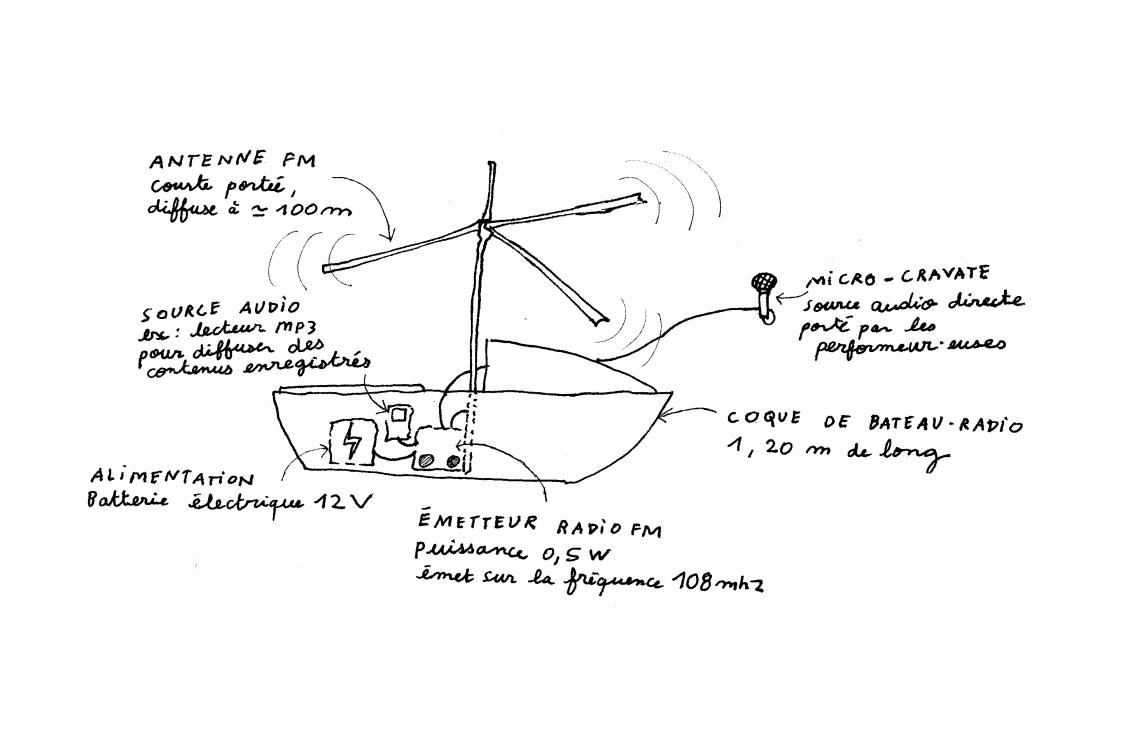 ANTENNE FM
courte portée,
diffuse à ≃ 100m
SOURCE AUDIO
ex: lecteur MP3
pour diffuser des
contenus enregistrés
MICRO-CRAVATE
source audio directe
porté par les
performeur·euses
COQUE DE BATEAU-RADIO
1,20 m de long
ALIMENTATION
Batterie électrique 12V
ÉMETTEUR RADIO FM
puissance 0,5W
émet sur la fréquence 108mhz